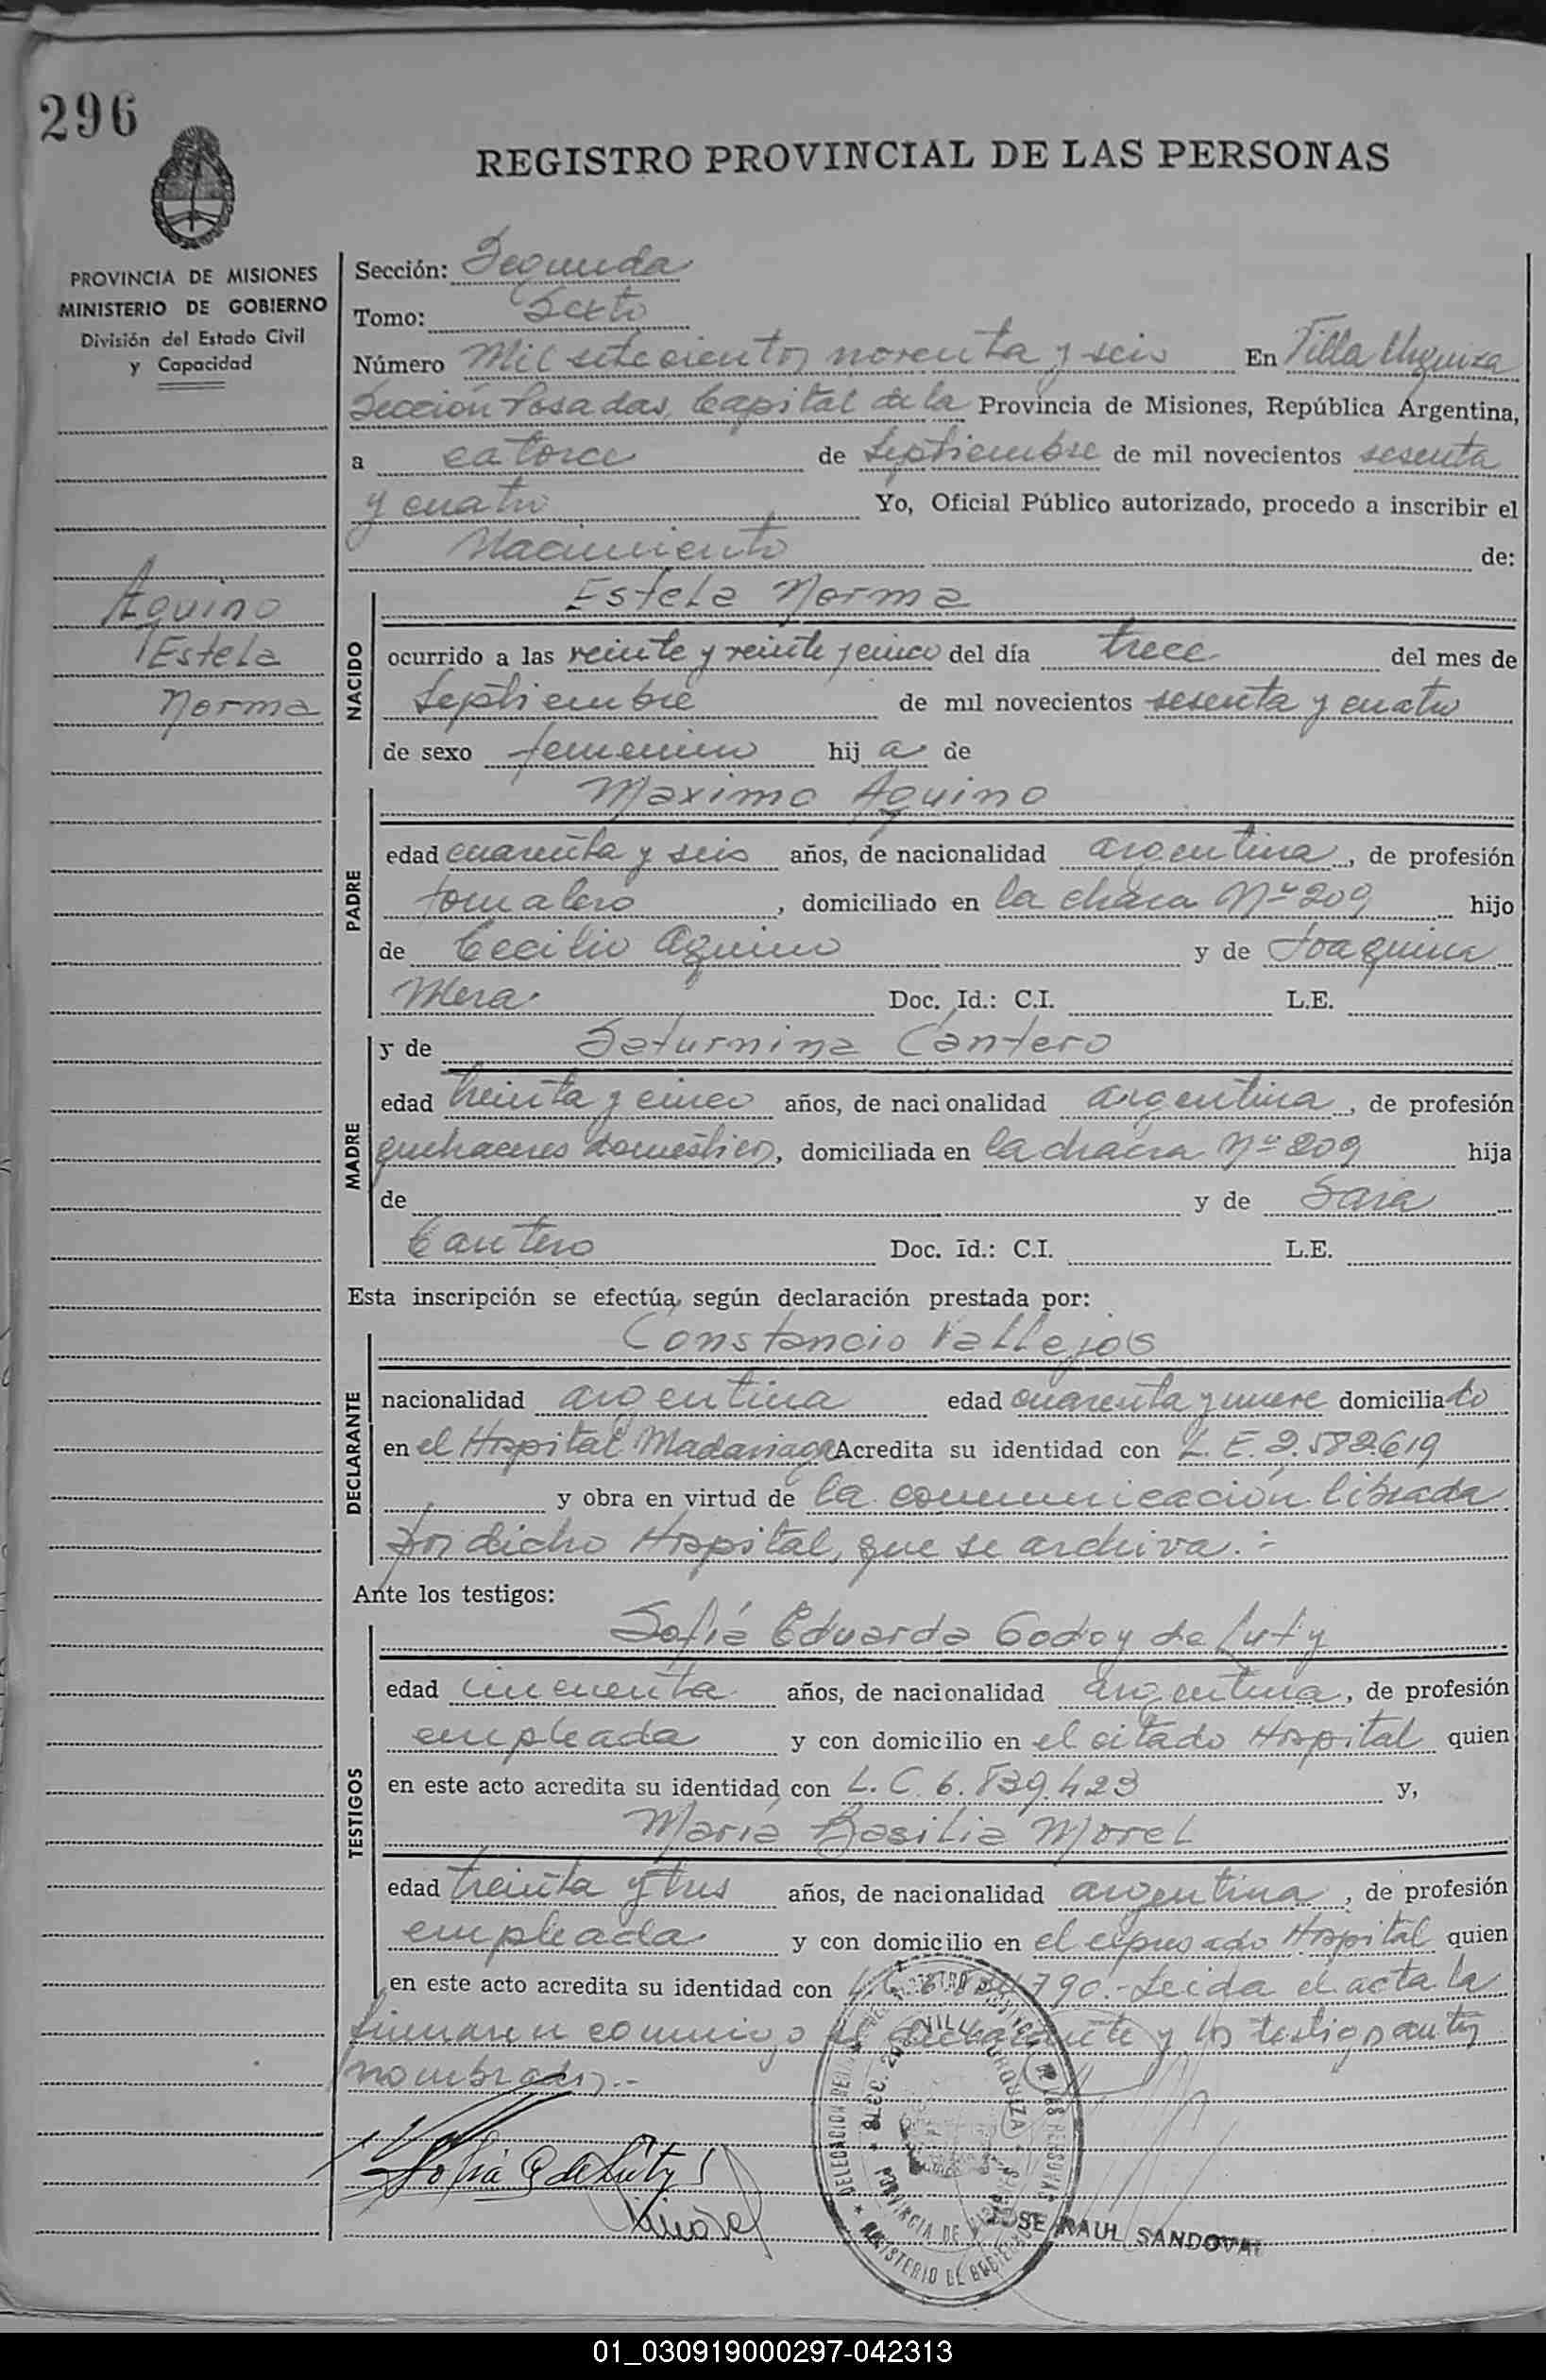 296
REGISTRO PROVINCIAL DE LAS PERSONAS
PROVINCIA DE MISIONES
MINISTERIO DE GOBIERNO
División del Estado Civil
y Capacidad
Aquino
Estela
Norma
Sección: Segunda
Tomo: Sexto
Número Mil setecientos noventa y seis En Villa Urquiza
Sección Posadas, Capital de la Provincia de Misiones, República Argentina,
a catorce de Septiembre de mil novecientos sesenta
y cuatro Yo, Oficial Público autorizado, procedo a inscribir el
Nacimiento de:
NACIDO
Estela Norma
ocurrido a las veinte y veinte y cinco del día trece del mes de
Septiembre de mil novecientos sesenta y cuatro
de sexo femenino hij a de
PADRE
Maximo Aquino
edad cuarenta y seis años, de nacionalidad argentina, de profesión
jornalero, domiciliado en la chacra Nº 209 hijo
de Cecilio Aquino y de Joaquina
Mera. Doc. Id.: C.I. L.E.
MADRE
y de Saturnina Cantero
edad treinta y cinco años, de nacionalidad argentina, de profesión
quehaceres domésticos, domiciliada en la chacra Nº 209 hija
de y de Sara
Cantero Doc. Id.: C.I. L.E.
Esta inscripción se efectúa, según declaración prestada por:
DECLARANTE
Constancio Vallejos
nacionalidad argentina edad cuarenta y nueve domiciliado
en el Hospital Madariaga Acredita su identidad con L. E. 2.582.619
y obra en virtud de la comunicación librada
por dicho Hospital, que se archiva.-
Ante los testigos:
TESTIGOS
Sofía Eduarda Godoy de Luty
edad cincuenta años, de nacionalidad argentina, de profesión
empleada y con domicilio en el citado Hospital quien
en este acto acredita su identidad con L. C. 6.839.423 y,
María Basilia Morel
edad treinta y tres años, de nacionalidad argentina, de profesión
empleada y con domicilio en el expresado Hospital quien
en este acto acredita su identidad con 790.- Leida el acta la
firmaron conmigo el declarante y los testigos antes
nombrados.-
Sofia G de Luty
JOSE RAUL SANDOVAL
01_030919000297-042313